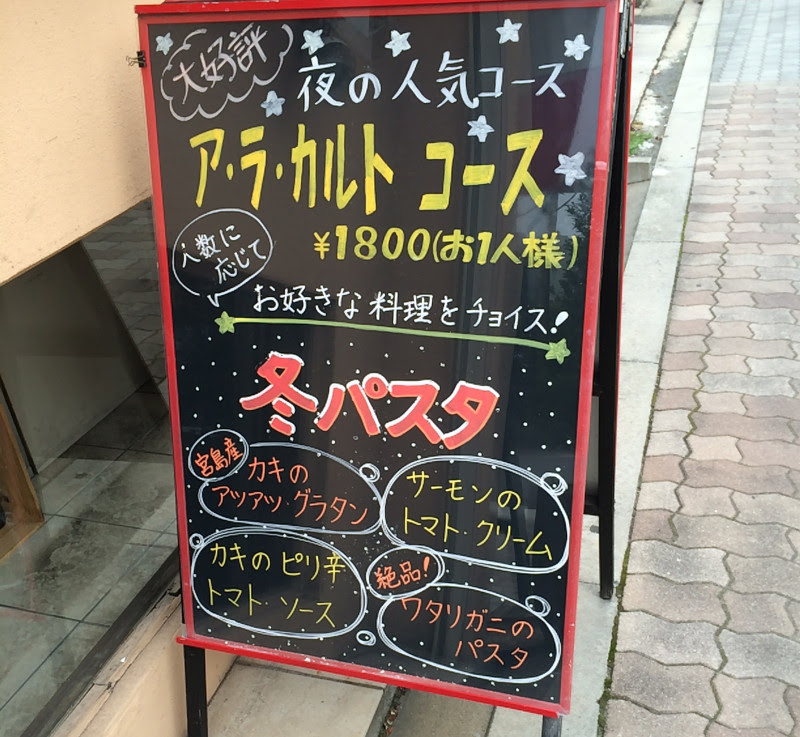 大好評
夜の人気コース
ア・ラ・カルト コース
¥1800(お1人様)
人数に
応じて
お好きな料理をチョイス!
冬パスタ
宮島産
カキの
アツアツ・グラタン
サーモンの
トマト・クリーム
カキのピリ辛
トマト・ソース
絶品!
ワタリガニの
パスタ